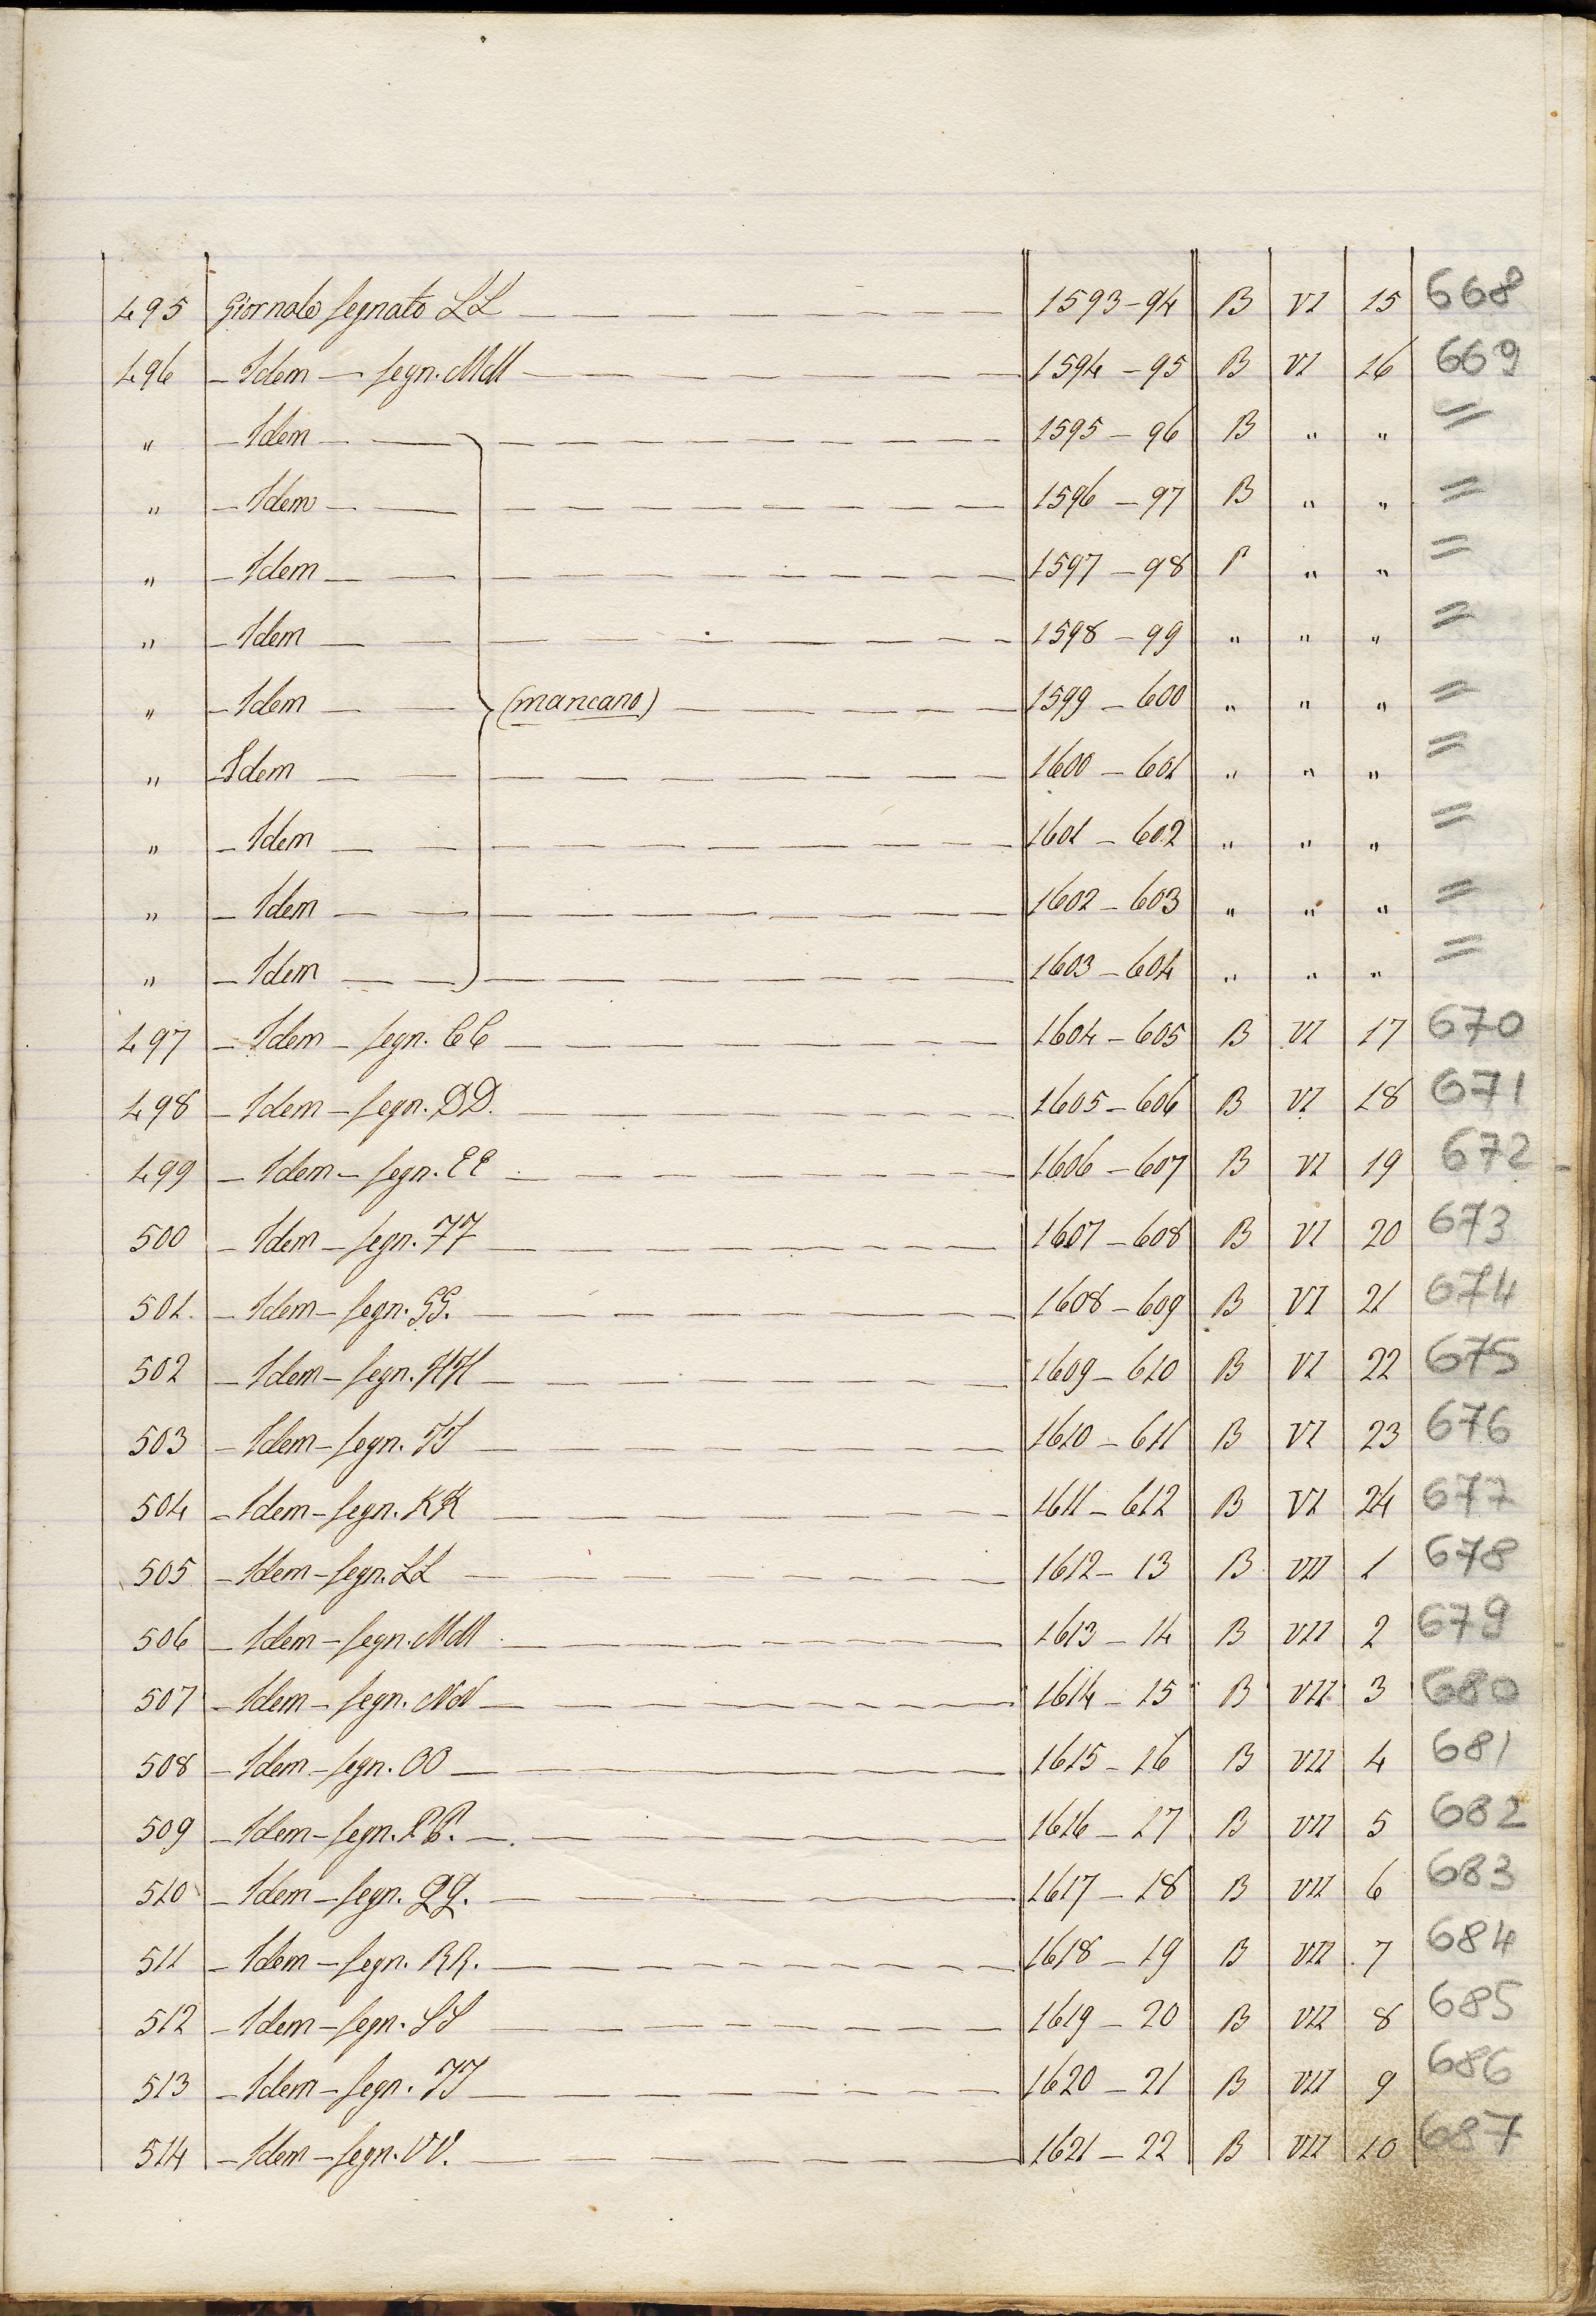 495 Giornale segnato LL 1593-94 B VI 15 668
496 - Idem - segn. MM 1594-95 B VI 16 669
" - Idem 1595-96 B " " =
" - Idem 1596-97 B " " =
" - Idem 1597-98 " " =
" - Idem 1598-99 " " " =
" - Idem (mancano) 1599-600 " " " =
" - Idem 1600-601 " " " =
" - Idem 1601-602 " " " =
" - Idem 1602-603 " " " =
" - Idem 1603-604 " " " =
497 - Idem - segn. CC 1604-605 B VI 17 670
498 - Idem - segn. DD. 1605-606 B VI 18 671
499 - Idem - segn. EE 1606-607 B VI 19 672
500 - Idem - segn. FF 1607-608 B VI 20 673
501. - Idem - segn. GG. 1608-609 B VI 21 674
502 - Idem - segn. HH 1609-610 B VI 22 675
503 - Idem - segn. II 1610-611 B VI 23 676
504 - Idem - segn. KK 1611-612 B VI 24 677
505 - Idem - segn. LL 1612-13 B VII 1 678
506 - Idem - segn. MM 1613-14 B VII 2 679
507 - Idem - segn. NN 1614-15 B VII 3 680
508 - Idem - segn. OO 1615-16 B VII 4 681
509 - Idem - segn. PP. 1616-17 B VII 5 682
510 - Idem - segn. QQ. 1617-18 B VII 6 683
511 - Idem - segn. RR. 1618-19 B VII 7 684
512 - Idem - segn. SS 1619-20 B VII 8 685
513 - Idem - segn. TT 1620-21 B VII 9 686
514 - Idem - segn. VV. 1621-22 B VII 10 687